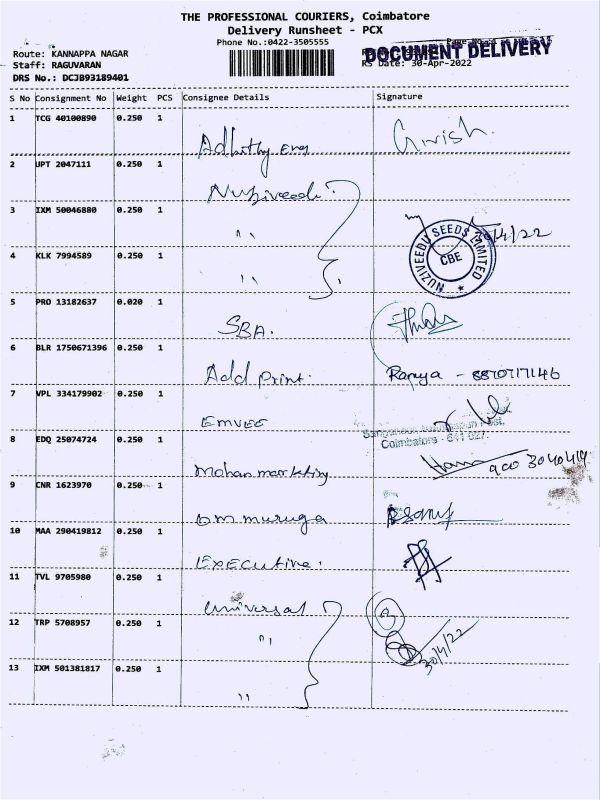 THE PROFESSIONAL COURIERS, Coimbatore
Delivery Runsheet - PCX
Phone No.:0422-3505555
Page No
DOCUMENT DELIVERY
Route: KANNAPPA NAGAR
Staff: RAGUVARAN
RS Date: 30-Apr-2022
DRS No.: DCJB93189401
S No Consignment No Weight PCS Consignee Details Signature
1 TCG 40100890 0.250 1 Girish.
Adhithy Eng
2 UPT 2047111 0.250 1
Nuziveedu
3 IXM 50046880 0.250 1
" 30/4/22
NUZIVEEDU SEEDS LIMITED
CBE
4 KLK 7994589 0.250 1
"
5 PRO 13182637 0.020 1
SBA.
6 BLR 1750671396 0.250 1
Add print. Ranya - 8870717146
7 VPL 334179902 0.250 1
EMVEE
Coimbatore - 641 027.
8 EDQ 25074724 0.250 1
Mohan marketing 900 3040414
9 CNR 1623970 0.250 1
om muruga
10 MAA 290419812 0.250 1
Executive.
11 TVL 9705980 0.250 1
universal
12 TRP 5708957 0.250 1
" 30/4/22
13 IXM 501381817 0.250 1
"